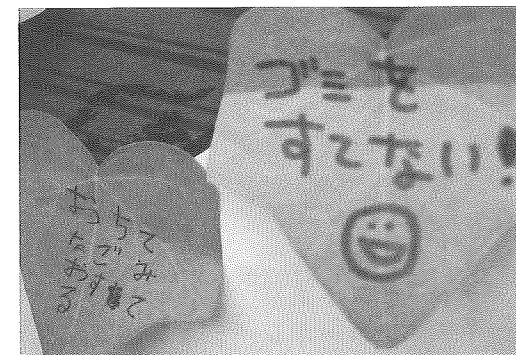 ゴミを
すてない!
ちて
ごみ
すて
る